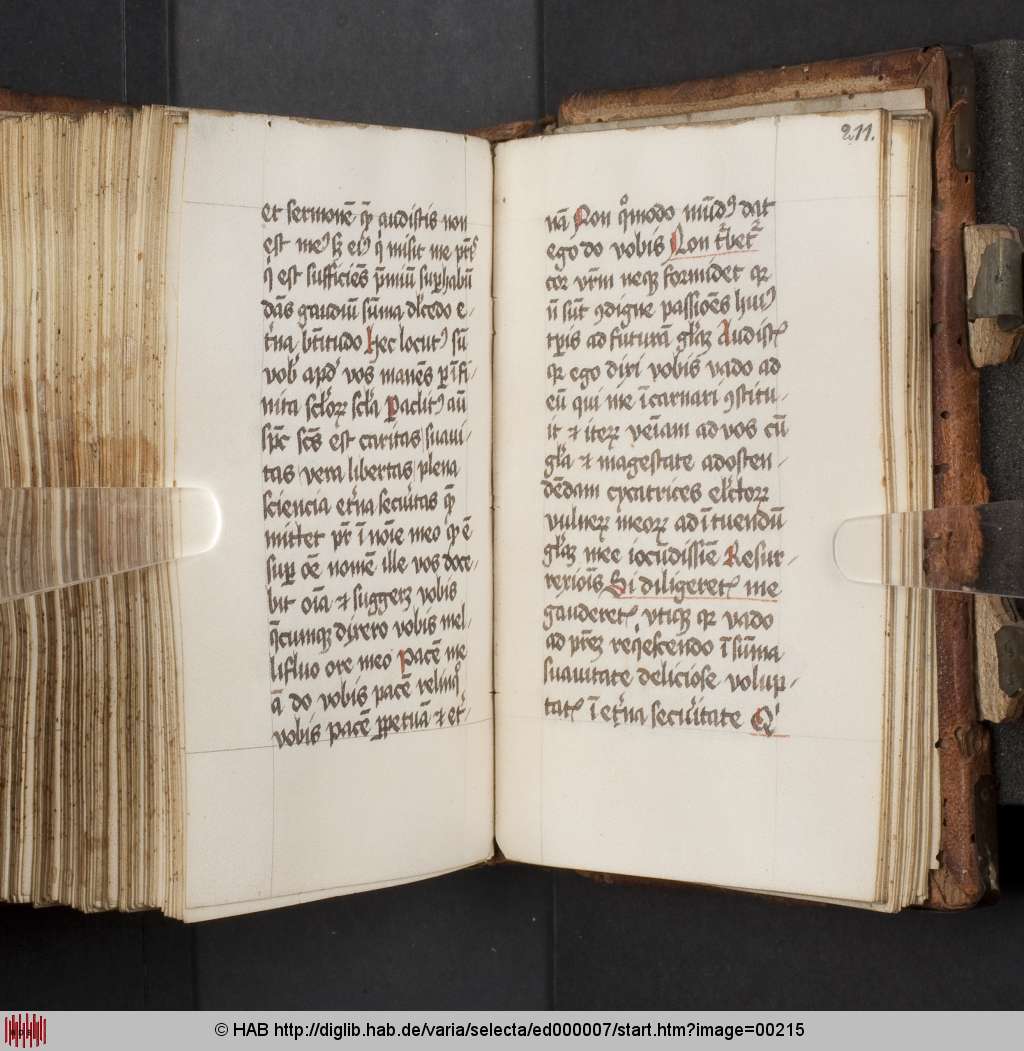 et sermonē quē audistis non
est meꝰ sꝫ eiꝰ qͥ misit me pr̄is
qͥ est sufficiēs p̄miū suꝑhabū
dās gaudiū sūma dl̓cedo e-
t̓na b̄titudo Hec locutꝰ sū
vob̓ apd̓ vos manēs ꝑ īfi-
nita scl̓orꝝ scl̓a Paclitꝰ aū
sp̄c sc̄s est caritas suaui-
tas vera libertas plena
sciencia et̓na secūitas quē
mittet pr̄ ī noīe meo qꝫ ē
suꝑ oē nomē ille vos doce-
bit oīa et suggerꝫ vobis
q̄cumqꝫ dixero vobis mel-
lifluo ore meo Pacē me
ā do vobis pacē relinqͦ
vobis pacē ꝑpetuā et et̓-
211.
nā Non qͦmodo mūdꝰ dat
ego do vobis Non t̓bet̓
cor vr̄m neqꝫ formidet qꝛ
nō sūt ꝯdigne passiōes huiꝰ
tꝑis ad futurā gl̓aꝫ Audist̓
qꝛ ego dixi vobis vado ad
eū qui me īcarnari ꝯstitu-
it et iterꝝ veniam ad vos cū
gl̓a et magestate ad osten-
dēdam cycatrices el̓ctorꝝ
vulnerꝝ meorꝝ ad ītuendū
gl̓aꝫ mee iocūdissīe Resur-
rexiōis Si diligeret̓ me
gauderet̓ vtiqꝫ qꝛ vado
ad pr̄eꝫ reqͥescendo ī sūma
suauitate deliciose volup-
tat̓ ī et̓na secūitate Qͥ
© HAB http://diglib.hab.de/varia/selecta/ed000007/start.htm?image=00215